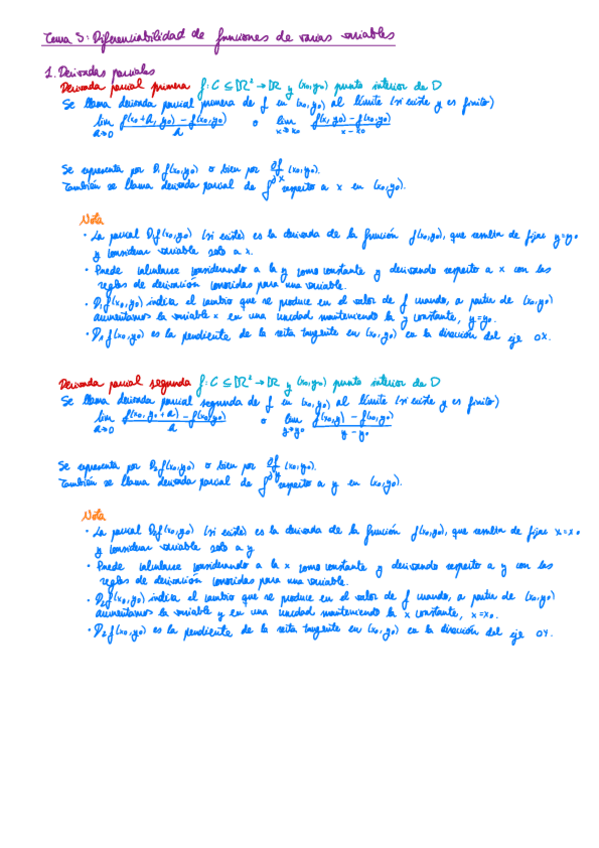 Tema 5: Diferenciabilidad de funciones de varias variables
1. Derivadas parciales
Derivada parcial primera f: C ⊆ ℝ² → ℝ y (x₀,y₀) punto interior de D
Se llama derivada parcial primera de f en (x₀,y₀) al límite (si existe y es finito)
lim a→0 f(x₀+a, y₀) - f(x₀,y₀) / a o lim x→x₀ f(x,y₀) - f(x₀,y₀) / x - x₀
Se representa por D₁f(x₀,y₀) o bien por ∂f/∂x (x₀,y₀).
También se llama derivada parcial de f respecto a x en (x₀,y₀).
Nota
• La parcial D₁f(x₀,y₀) (si existe) es la derivada de la función f(x,y₀), que resulta de fijar y=y₀
y considerar variable solo a x.
• Puede calcularse considerando a la y como constante y derivando respecto a x con las
reglas de derivación conocidas para una variable.
• D₁f(x₀,y₀) indica el cambio que se produce en el valor de f cuando, a partir de (x₀,y₀)
aumentamos la variable x en una unidad manteniendo la y constante, y=y₀.
• D₁f(x₀,y₀) es la pendiente de la recta tangente en (x₀,y₀) en la dirección del eje OX.
Derivada parcial segunda f: C ⊆ ℝ² → ℝ y (x₀,y₀) punto interior de D
Se llama derivada parcial segunda de f en (x₀,y₀) al límite (si existe y es finito)
lim a→0 f(x₀, y₀+a) - f(x₀,y₀) / a o lim y→y₀ f(x₀,y) - f(x₀,y₀) / y - y₀
Se representa por D₂f(x₀,y₀) o bien por ∂f/∂y (x₀,y₀).
También se llama derivada parcial de f respecto a y en (x₀,y₀).
Nota
• La parcial D₂f(x₀,y₀) (si existe) es la derivada de la función f(x₀,y), que resulta de fijar x=x₀
y considerar variable solo a y
• Puede calcularse considerando a la x como constante y derivando respecto a y con las
reglas de derivación conocidas para una variable.
• D₂f(x₀,y₀) indica el cambio que se produce en el valor de f cuando, a partir de (x₀,y₀)
aumentamos la variable y en una unidad manteniendo la x constante, x=x₀.
• D₂f(x₀,y₀) es la pendiente de la recta tangente en (x₀,y₀) en la dirección del eje OY.